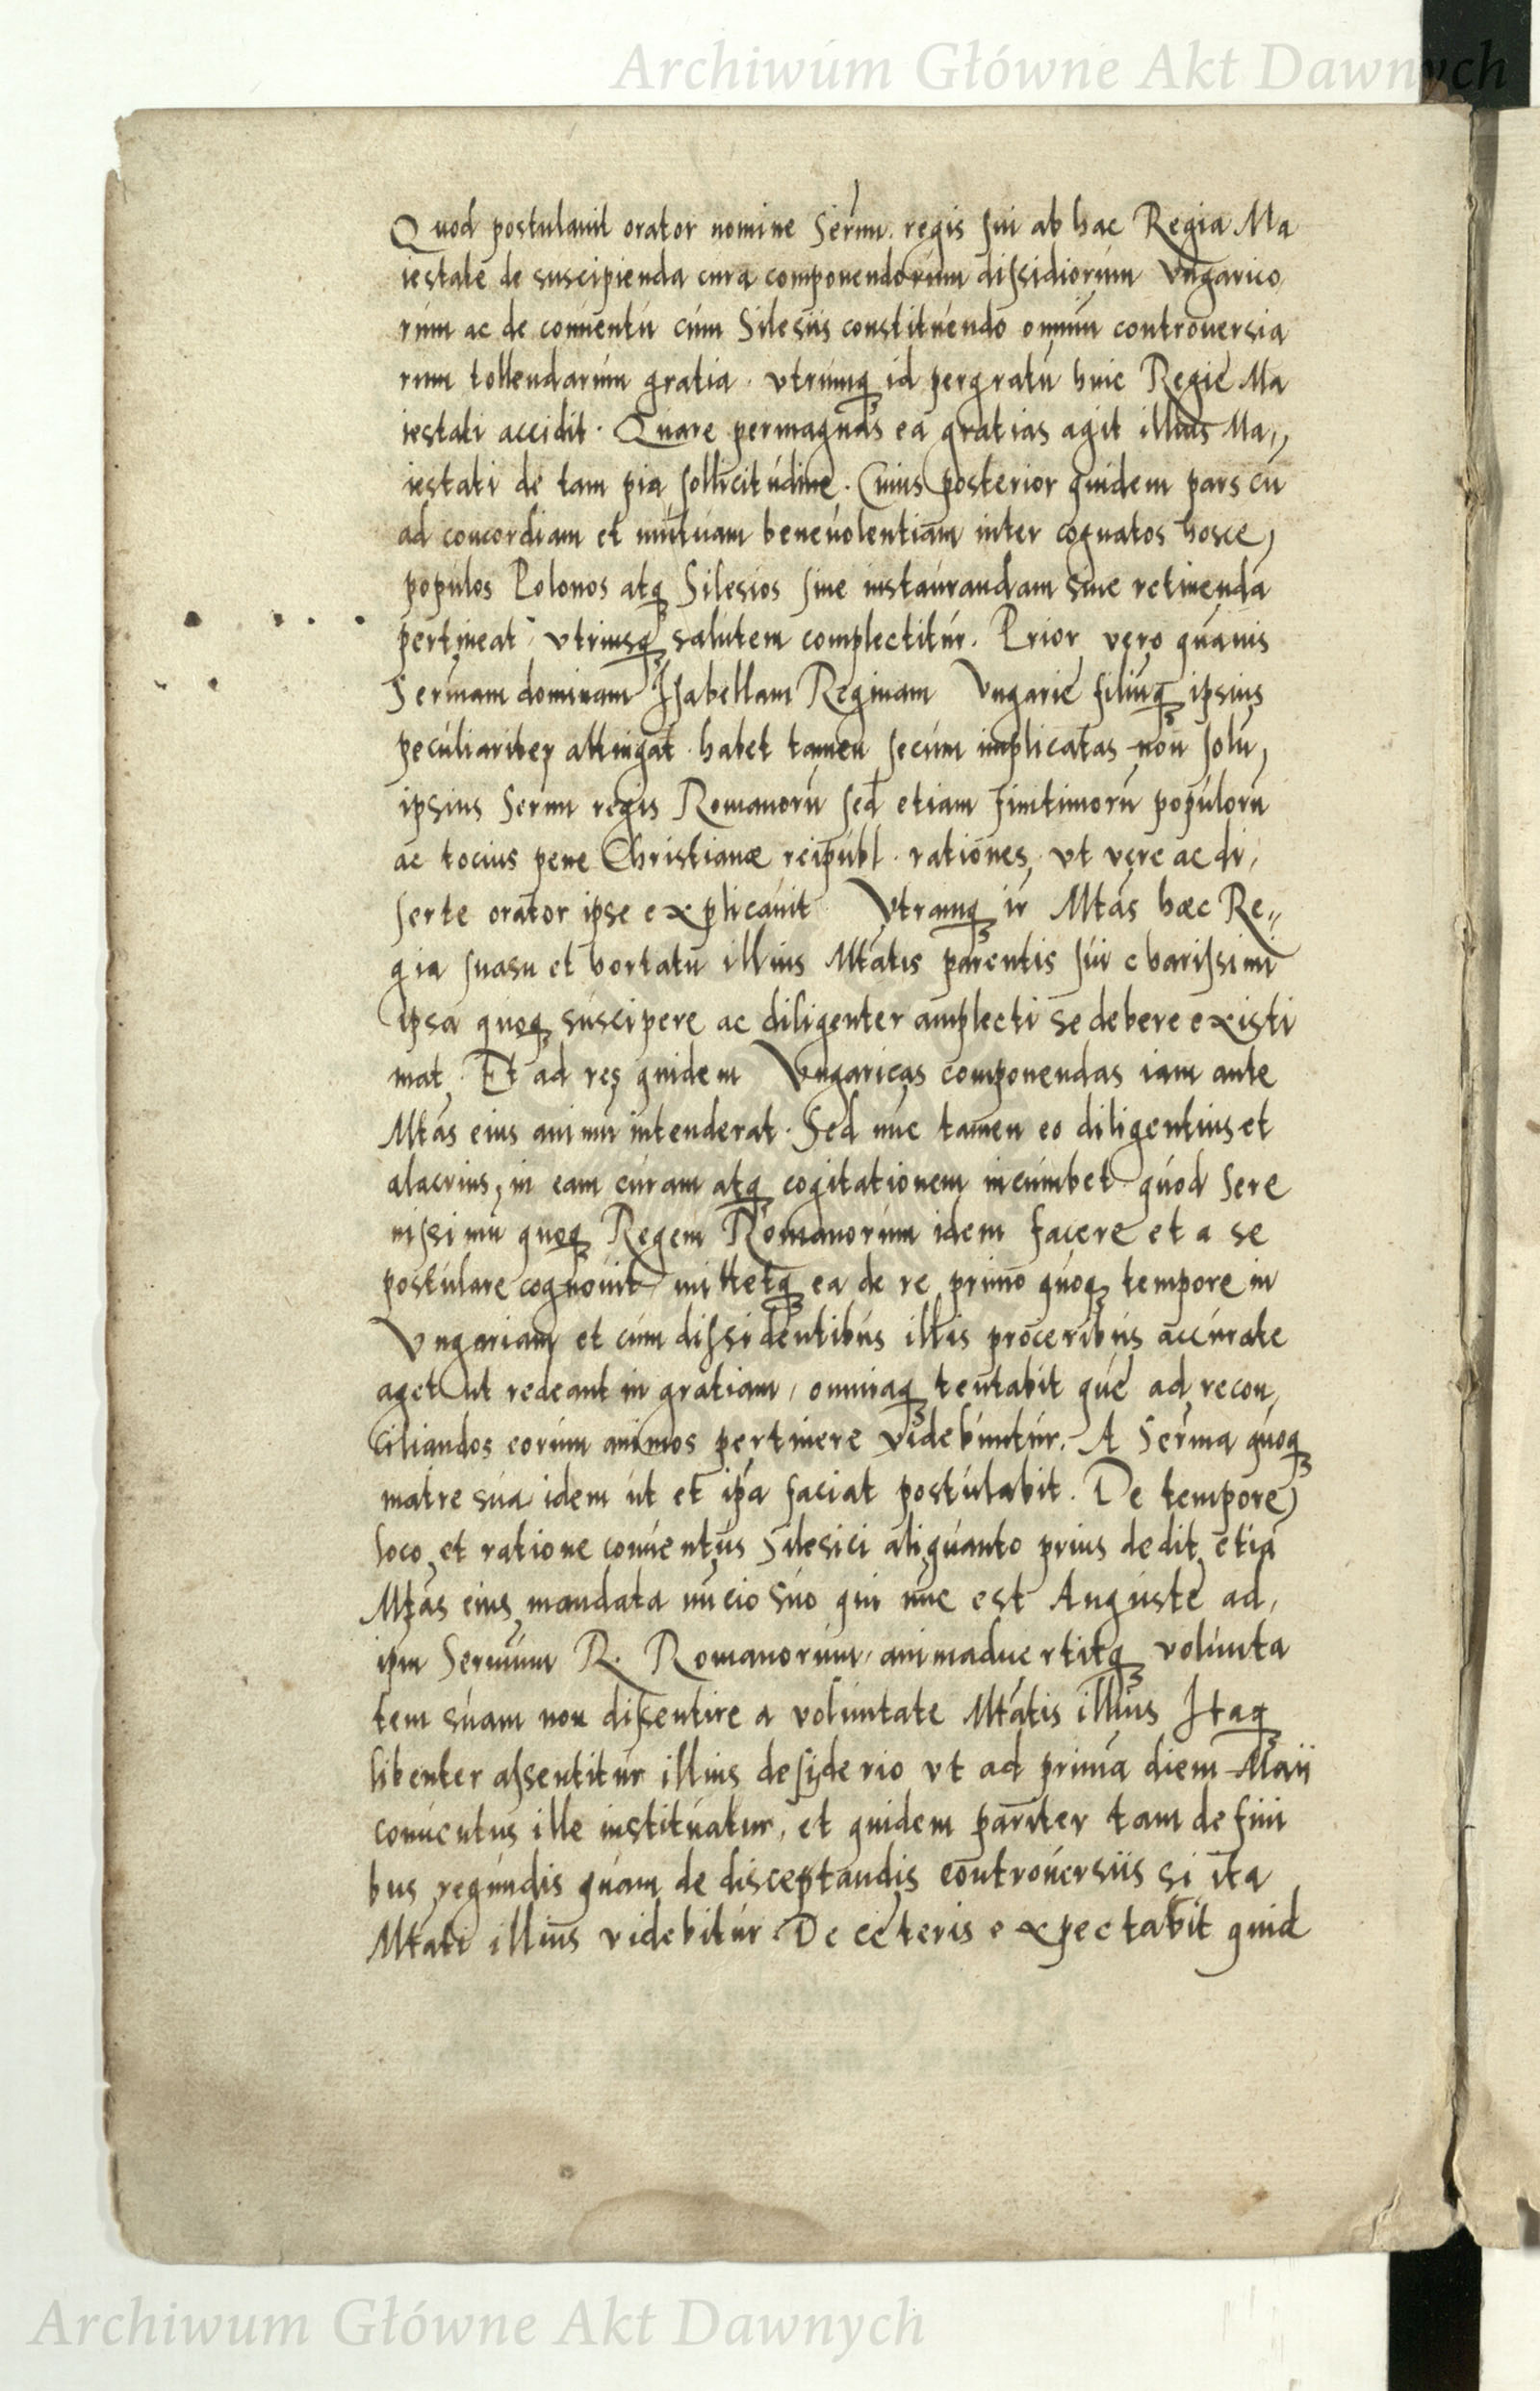 Archiwum Główne Akt Dawnych
Quod postulauit orator nomine Sermi. regis sui ab hac Regia Ma
iestate de suscipienda cura componendorum dissidiorum Vngarico
rum ac de conuentu cum Silesiis constituendo omniũ controuersia
rum tollendarum gratia. vtrumq; id pergratũ huic Regie Ma
iestati accidit. Quare permagnas ea gratias agit illius Ma,,
iestati de tam pia sollicitudine. Cuius posterior quidem pars cũ
ad concordiam et mutuam beneuolentiam inter cognatos hosce,
populos Polonos atq; Silesios siue instaurandam siue retinendã
pertineat, vtriusq; salutem complectitur. Prior vero quãuis
Sermam dominam Isabellam Reginam Vngarie filiũq; ipsius
peculiariter attingat. habet tamen secum implicatas non solũ,
ipsius Sermi regis Romanorũ sed etiam finitimorũ populorũ
ac tocius pene Christianæ reipubl. rationes, vt vere ac di,
serte orator ipse explicauit Vtramq; ir Mtãs hæc Re,,
gia suasu et hortatu illius Mtãtis parentis sui charissimi
ipsa quoq; suscipere ac diligenter amplecti se debere existi
mat, Et ad res quidem Vngaricas componendas iam ante
Mtãs eius animũ intenderat. Sed nũc tamen eo diligentius et
alacrius, in eam curam atq; cogitationem incumbet quod Sere
nissimũ quoq; Regem Romanorum idem facere et a se
postulare cognouit, mittetq; ea de re primo quoq; tempore in
Vngariam et cum dissidentibus illis proceribus accurate
aget ut redeant in gratiam, omniaq; tentabit que ad recon,
ciliandos eorum animos pertinere videbuntur. A Serma quoq;
matre sua idem ut et ip̃a faciat postulabit. De tempore,
loco et ratione conuentus Silesici aliquanto prius dedit etiã
Mtãs eius mandata nũcio suo qui nũc est Auguste ad,
ipm̃ Sermum R. Romanorum, animaduertitq; volunta
tem suam non dissentire a voluntate Mtãtis illius Itaq;
libenter assentitur illius desiderio vt ad primã diem Maii
conuentus ille instituatur, et quidem pariter tam de fini
bus regundis quam de disceptandis controuersiis si ita
Mtãti illius videbitur De ceteris expectabit quid
Archiwum Główne Akt Dawnych